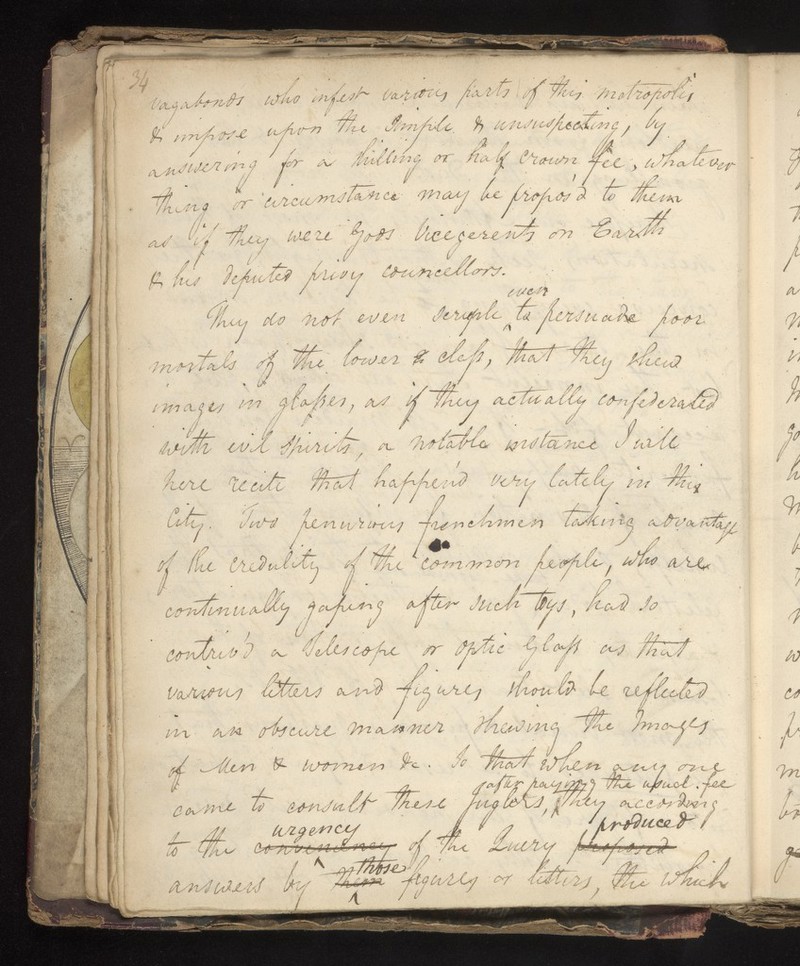 34
vagabonds who infest various parts of this metropolis
& impose upon the Simple & unsuspecting, by
answering for a shilling or half crown fee, whatever
thing or circumstance may be propos'd to them
as if they were Gods Vicegerents on Earth
& his deputed privy councellors.
even
They do not even scruple to persuade poor
mortals of the lower & class, that they shew
images in glasses, as if they actually confederated
with evil spirits, a notable instance I will
here recite that happen'd very lately in this
City. Two penurious frenchmen taking advantage
of the credulity of the common people, who are
continually gaping after such toys, had so
contriv'd a Telescope or optic Glass as that
various letters and figures should be reflected
in an obscure manner shewing the Images
of Men & women &c. So that when any one
after paying the usual fee
came to consult these Juglers, they according
urgency produced
to the conveniency of the Query proposed
those
answers by them figures or letters, the which